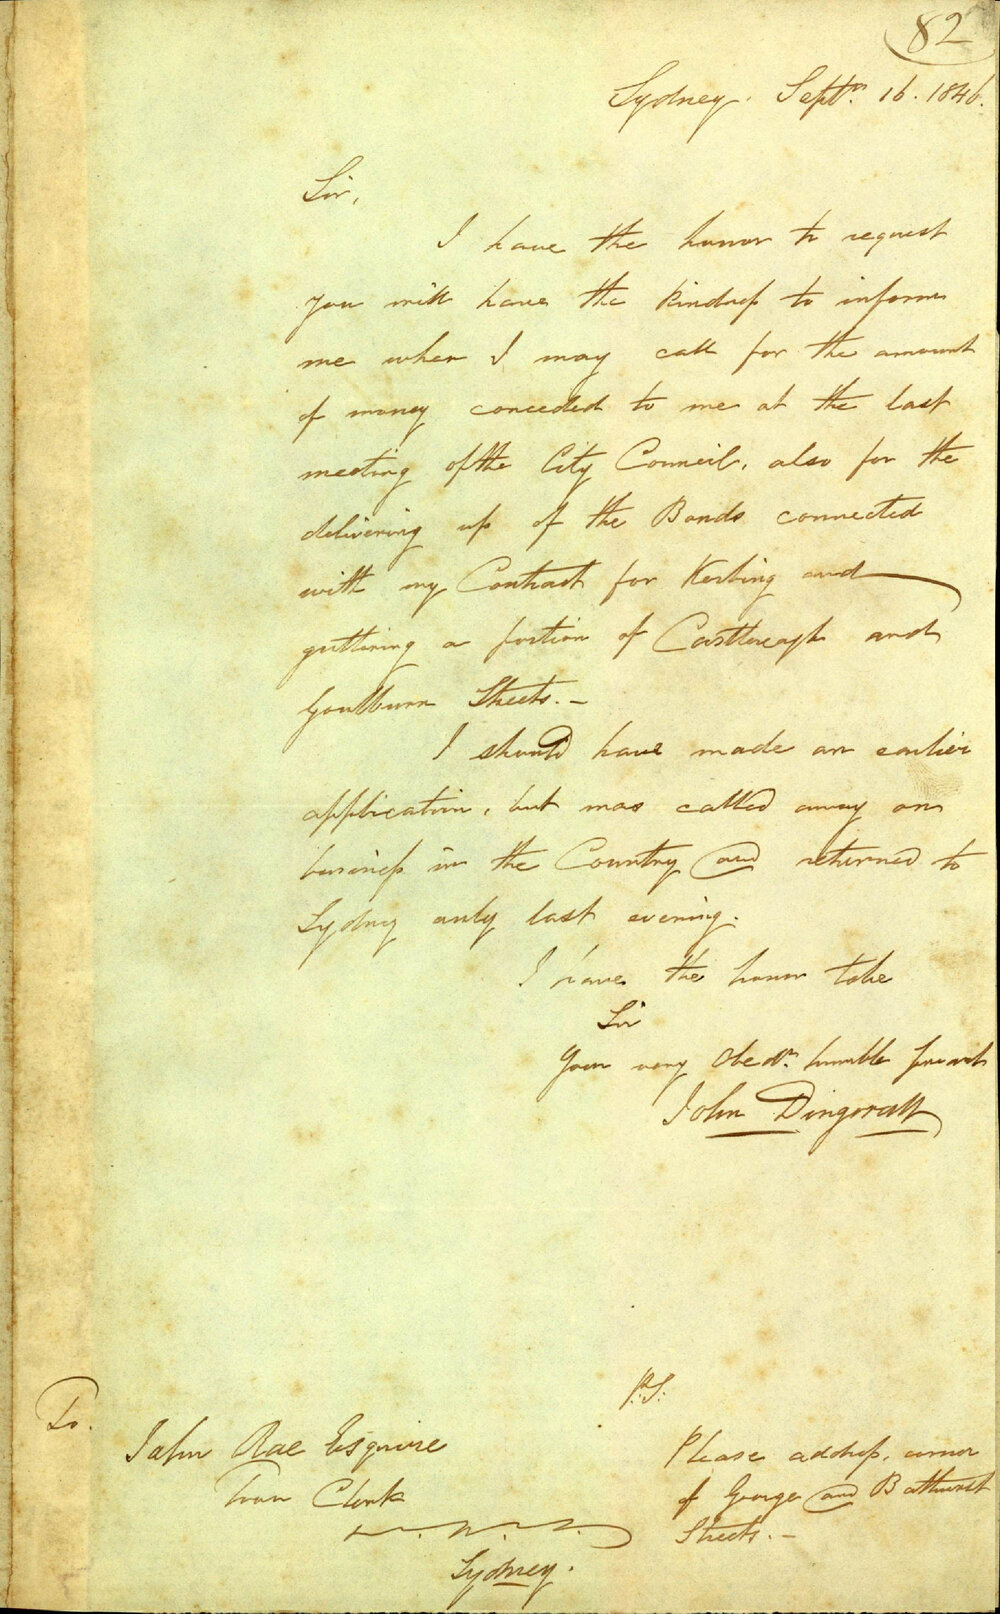 82
Sydney. Septr. 16. 1846.
Sir,
I have the honor to request
you will have the kindness to inform
me when I may call for the amount
of money conceeded to me at the last
meeting of the City Council, also for the
delivering up of the Bonds connected
with my Contract for Kerbing and
guttering a portion of Castlereagh and
Goulburn Streets. –
I should have made an earlier
application, but was called away on
business in the Country and returned to
Sydney only last evening.
I have the honor to be
Sir
Your very Obedt. humble servant
John
P.S.
To.
John Rae Esquire
Town Clerk
Sydney.
Please address, corner
of George and Bathurst
Streets. –